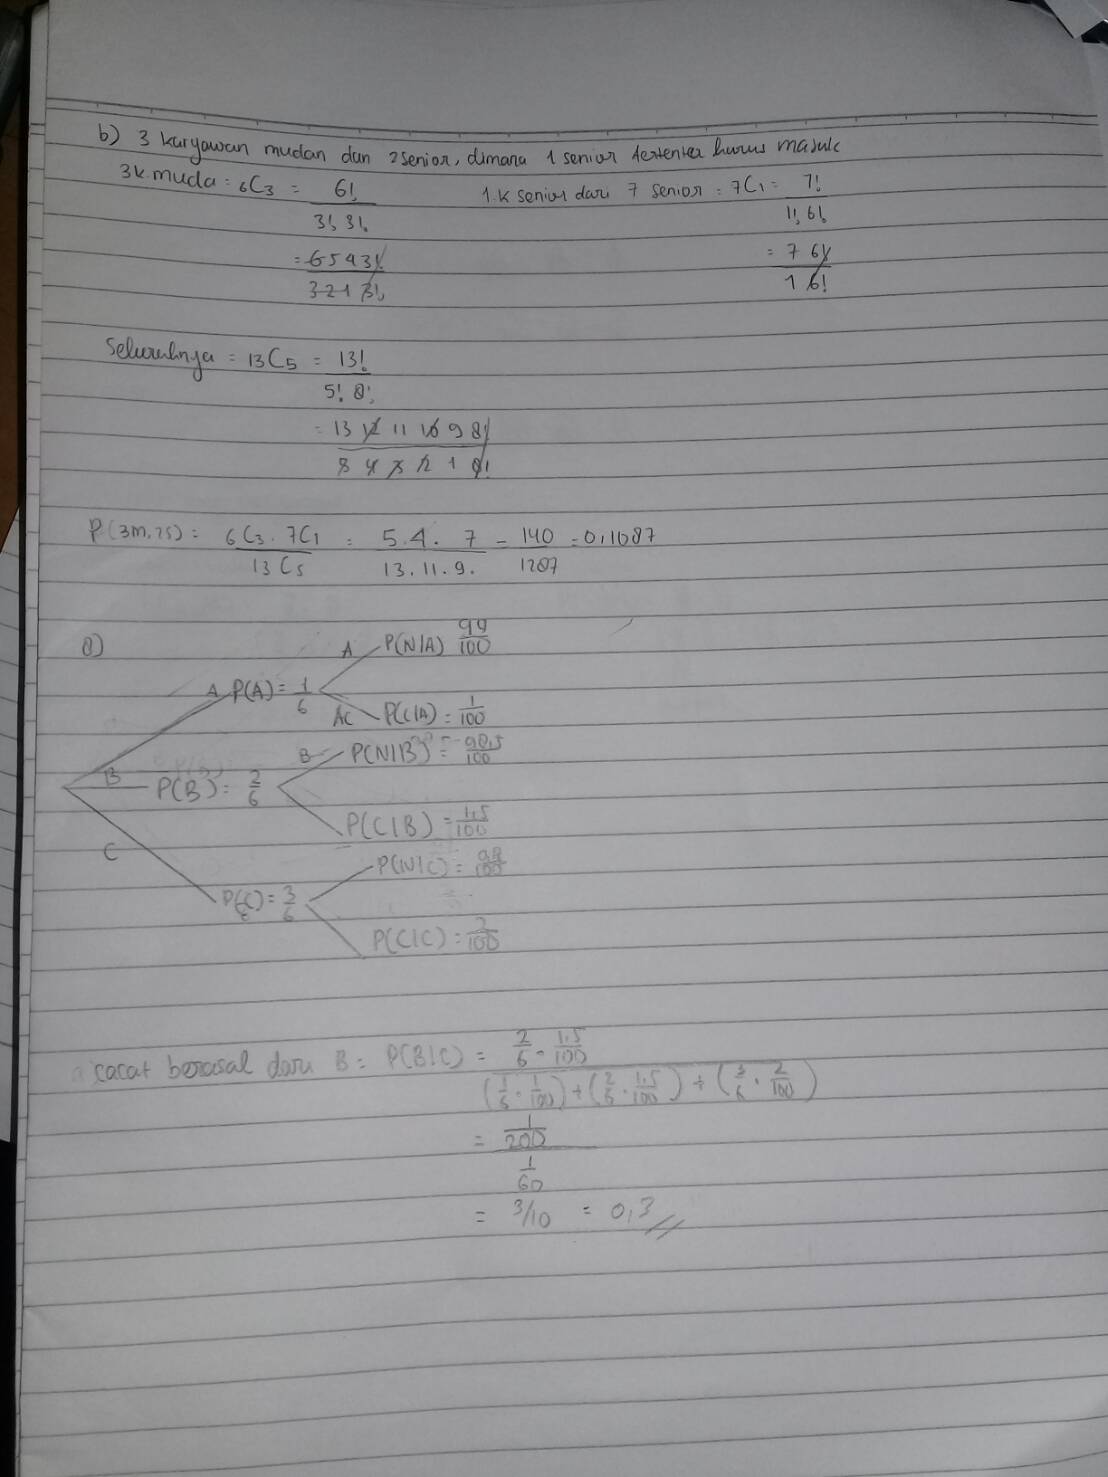 b) 3 karyawan mudan dan 2 senior, dimana 1 senior tertentu harus masuk
3k.muda = 6C3 = 6! / 3! 3!   1.k senior dari 7 senior = 7C1 = 7! / 1! 6!
= 6 5 4 3! / 3 2 1 3!   = 7 6! / 1 6!
Seluruhnya = 13C5 = 13! / 5! 8!
= 13 12 11 10 9 8! / 5 4 3 2 1 8!
P(3m,2s) = 6C3 . 7C1 / 13C5 = 5.4. 7 / 13.11.9. = 140 / 1287 = 0,1087
A P(N|A) 99/100
A P(A) = 1/6
AC P(C|A) = 1/100
B P(N|B) = 98,5/100
B P(B) = 2/6
P(C|B) = 1,5/100
C
P(N|C) = 98/100
P(C) = 3/6
P(C|C) = 2/100
cacat berasal dari B = P(B|C) = 2/6 . 1.5/100 / (1/6 . 1/100) + (2/6 . 1.5/100) + (3/6 . 2/100)
= 1/200 / 1/60
= 3/10 = 0,3